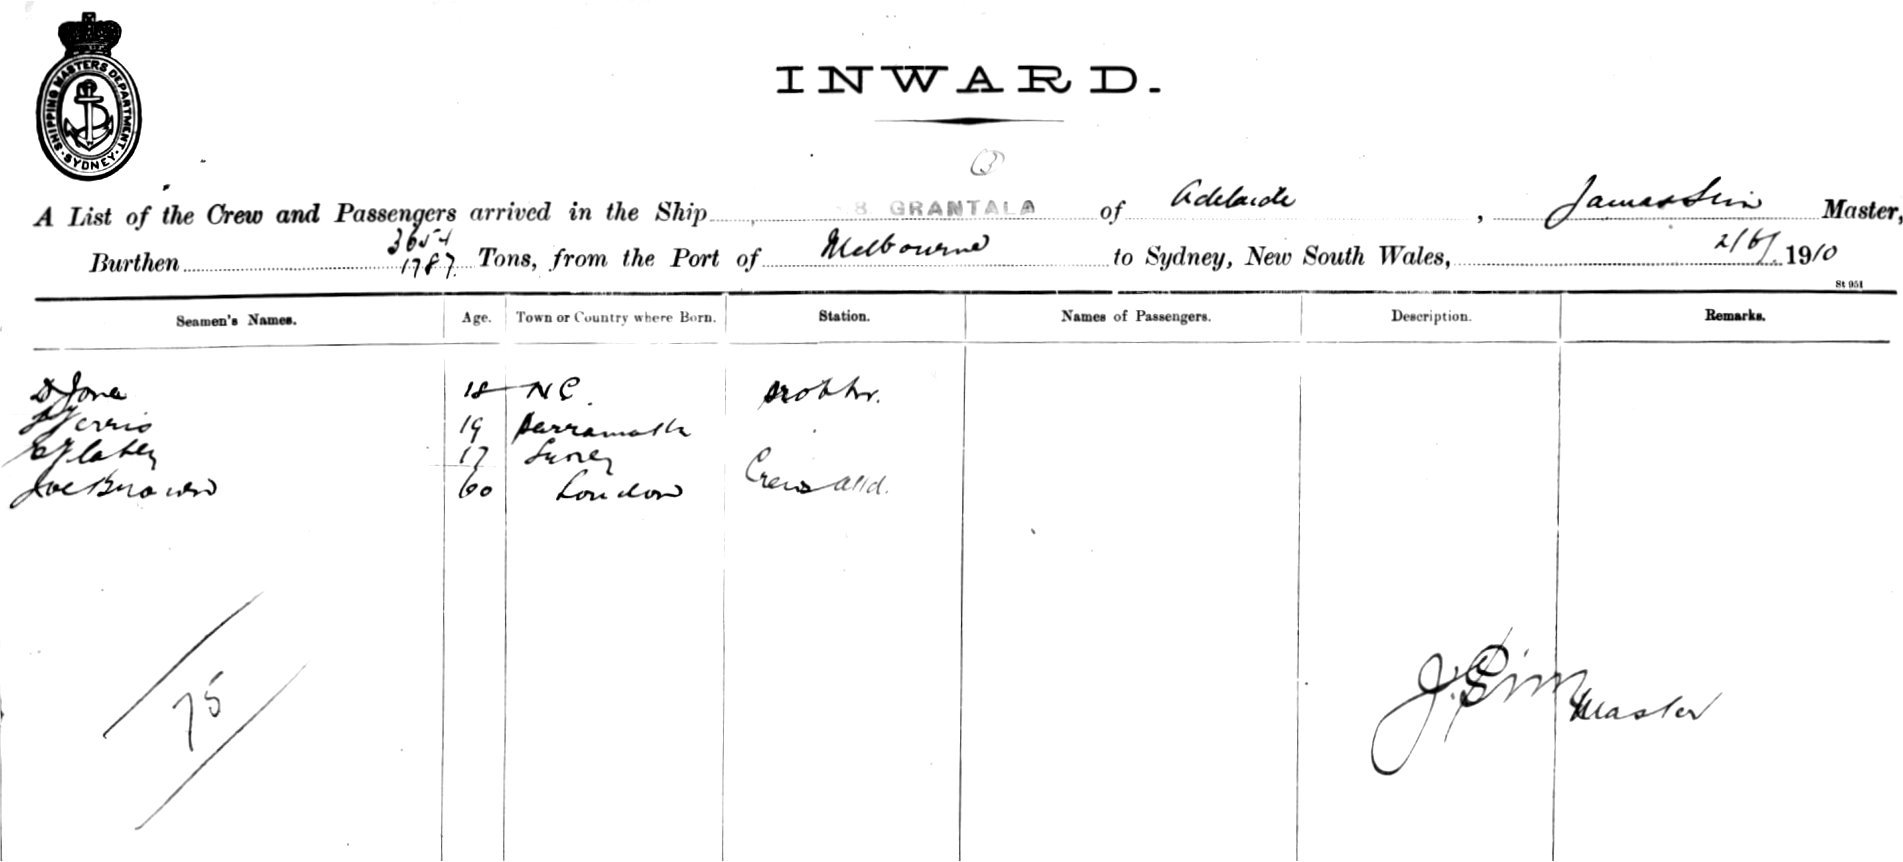 SHIPPING MASTERS DEPARTMENT
SYDNEY
INWARD.
A List of the Crew and Passengers arrived in the Ship S. GRANTALA of Adelaide, James Sim Master,
Burthen 3654 1787 Tons, from the Port of Melbourne to Sydney, New South Wales, 2/6/1910
St 951
Seamen's Names. Age. Town or Country where Born. Station. Names of Passengers. Description. Remarks.
18 N C.
19 Parramatta
17
Joe Brown 60 London Crews
75
J. Sim Master